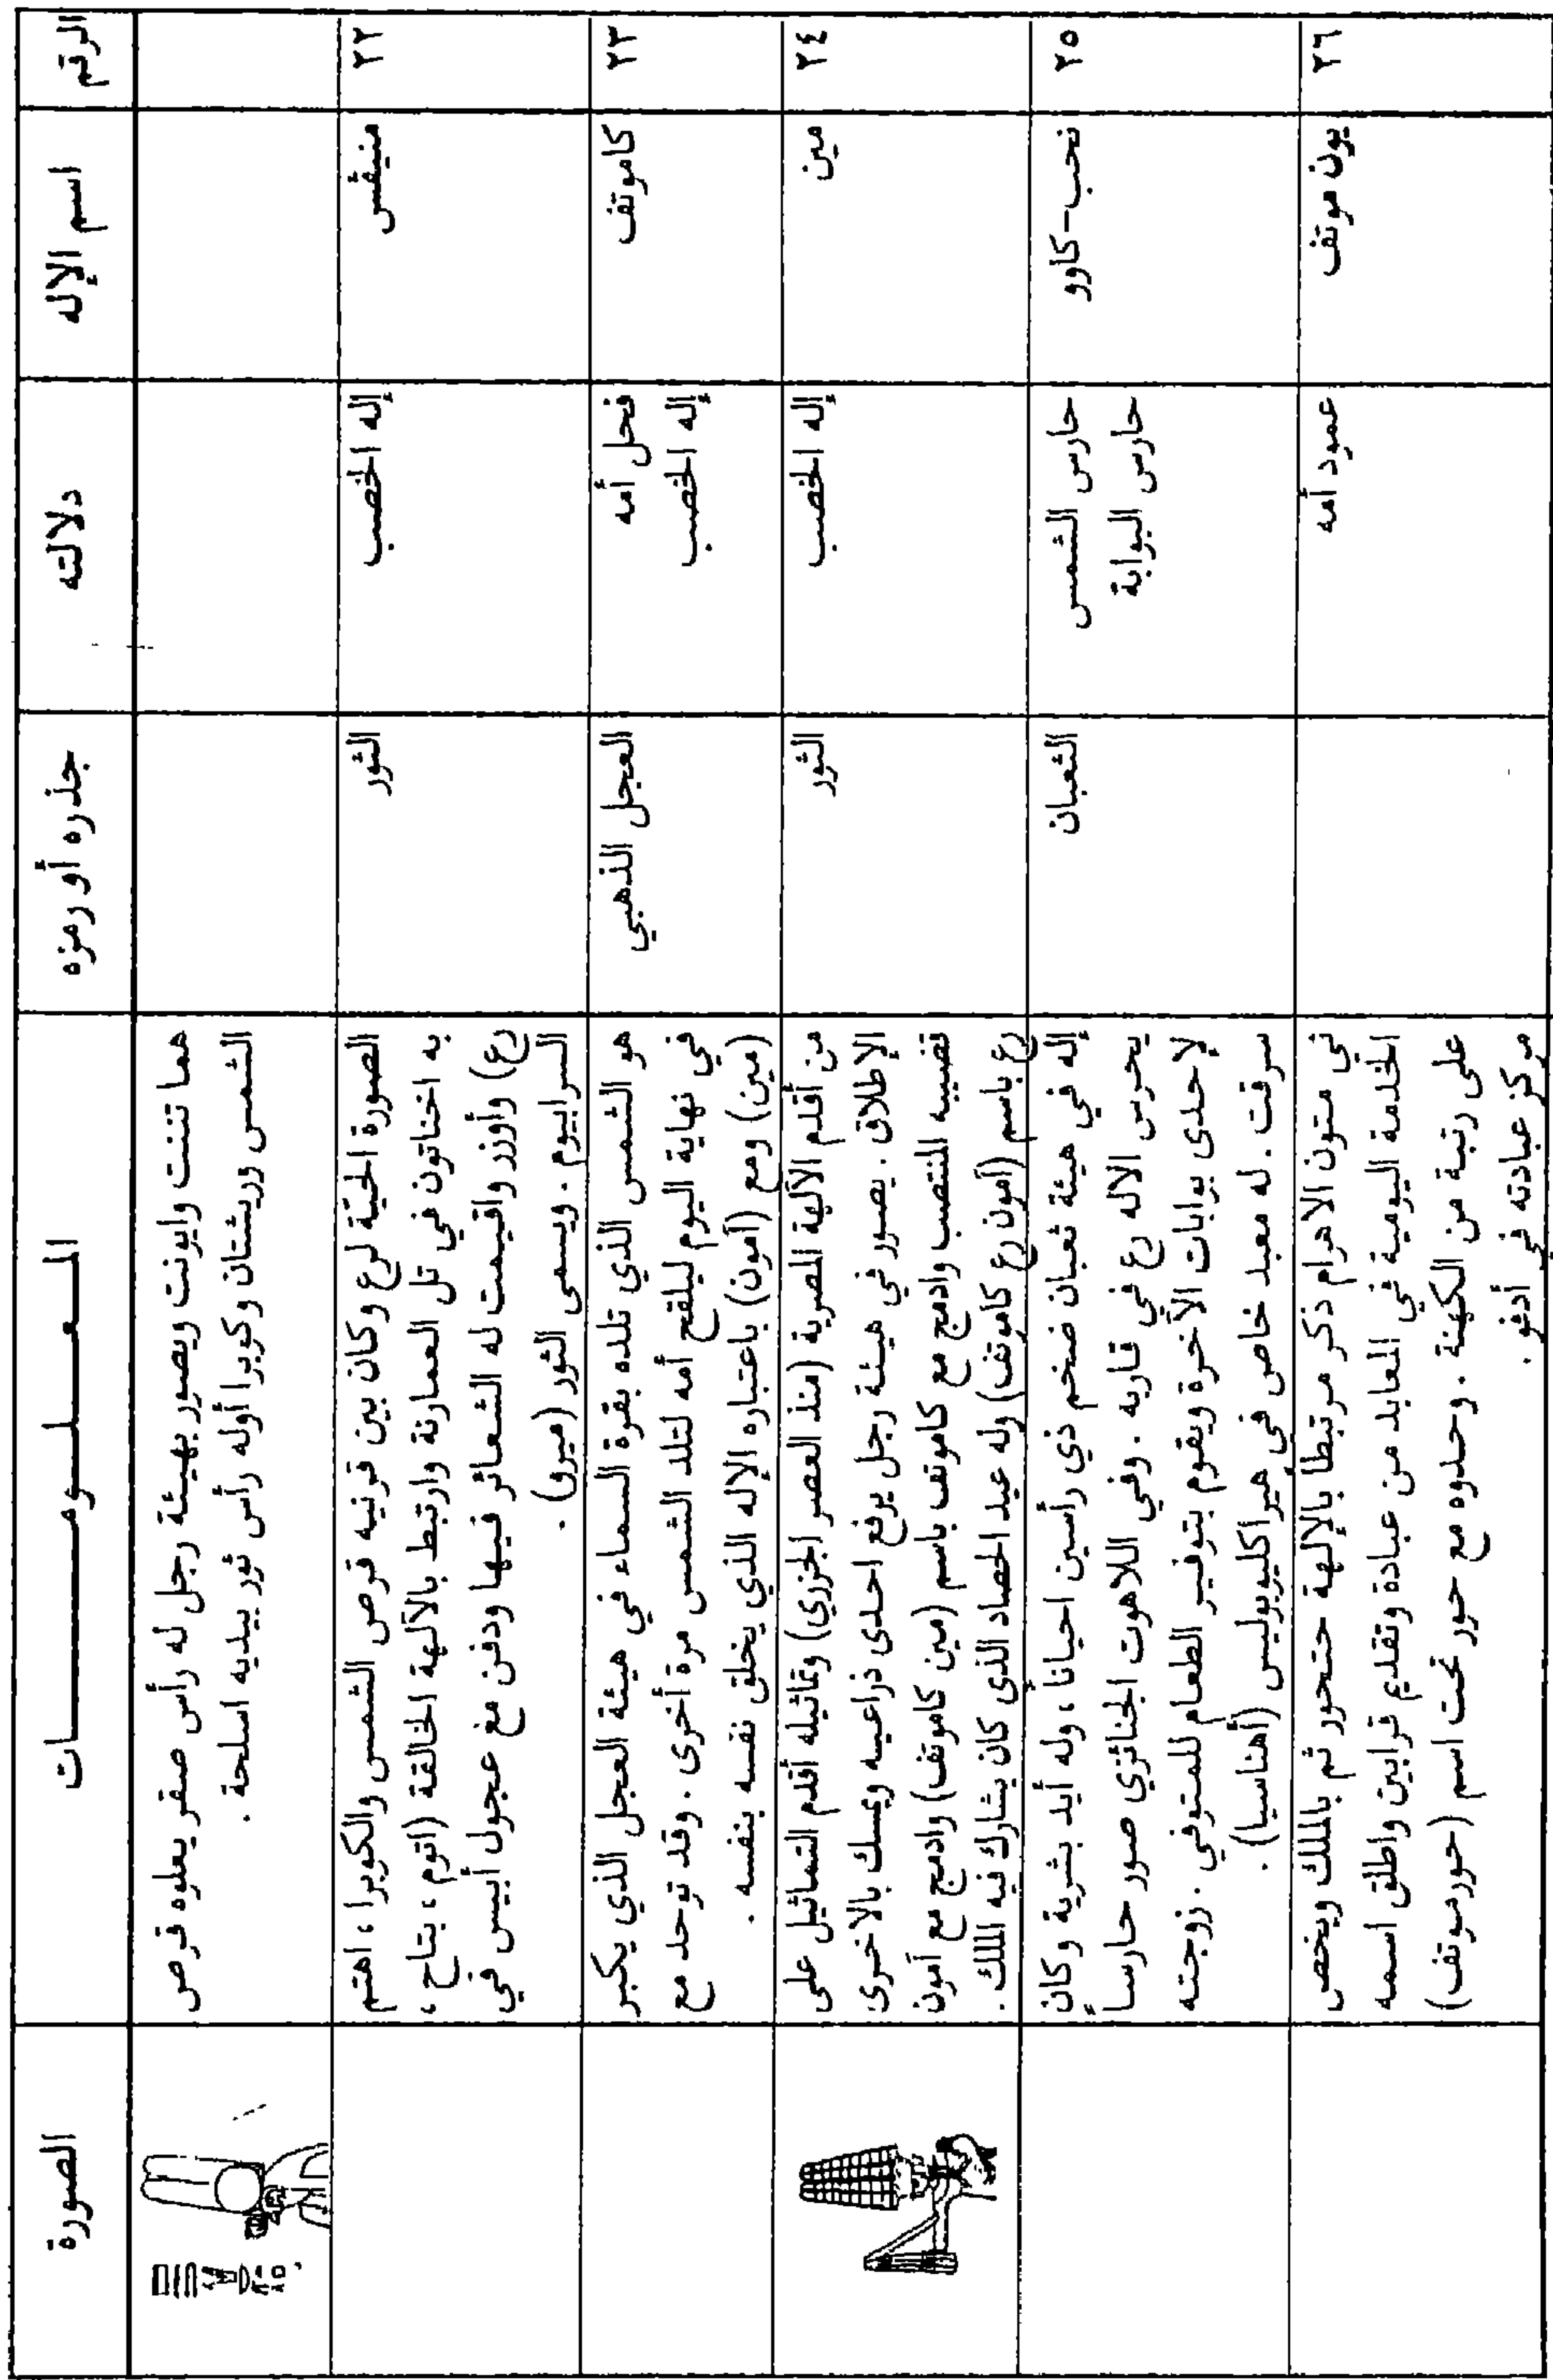 الرقم
اسم الإله
دلالته
جذره أو رمزه
المعلومات
الصورة
هما تننت وايونت ويصور بهيئة رجل له رأس صقر يعلوه قرص
الشمس وريشتان وكوبرا أوله رأس ثور بيديه اسلحة .
٢٢
منيفس
إله الخصب
الثور
الصورة الحيّة لرع وكان بين قرنيه قرص الشمس والكوبرا ، اهتم
به اخناتون في تل العمارنة وارتبط بالآلهة الخالقة (اتوم ، بتاح ،
رع) وأوزر واقيمت له الشعائر فيها ودفن مع عجول أبيس في
السرابيوم . ويسمى الثور (ميرو) .
٢٣
كاموتف
فحل أمه
إله الخصب
العجل الذهبي
هو الشمس الذي تلده بقرة السماء في هيئة العجل الذي يكبر
في نهاية اليوم ليلقح أمه لتلد الشمس مرة أخرى . وقد توحد مع
(مين) ومع (آمون) باعتباره الإله الذي يخلق نفسه بنفسه .
٢٤
مين
إله الخصب
الثور
من أقدم الآلهة المصرية (منذ العصر الجزري) وتماثيله أقدم التماثيل على
الإطلاق . يصور في هيئة رجل يرفع احدى ذراعيه ويمسك بالاخرى
قضيبه المنتصب وادمج مع كاموتف باسم (مين كاموتف) وادمج مع آمون
رع باسم (آمون رع كاموتف) وله عيد الحصاد الذي كان يشارك فيه الملك .
٢٥
نحب-كاوو
حارس الشمس
حارس البوابة
الثعبان
إله في هيئة ثعبان ضخم ذي رأسين احيانا ، وله أيد بشرية وكان
يحرس الاله رع في قاربه . وفي اللاهوت الجنائزي صور حارساً
لإحدى بوابات الآخرة ويقوم بتوفير الطعام للمتوفي . زوجته
سرقت . له معبد خاص في هيراكليوبوليس (أهناسيا) .
٢٦
يون موتف
عمود أمه
في متون الاهرام ذكر مرتبطا بالإلهة حتحور ثم بالملك ويخص
الخدمة اليومية في المعابد من عبادة وتقديم قرابين واطلق اسمه
على رتبة من الكهنة . وحدوه مع حور تحت اسم (حورموتف)
مركز عبادته في أدفو .